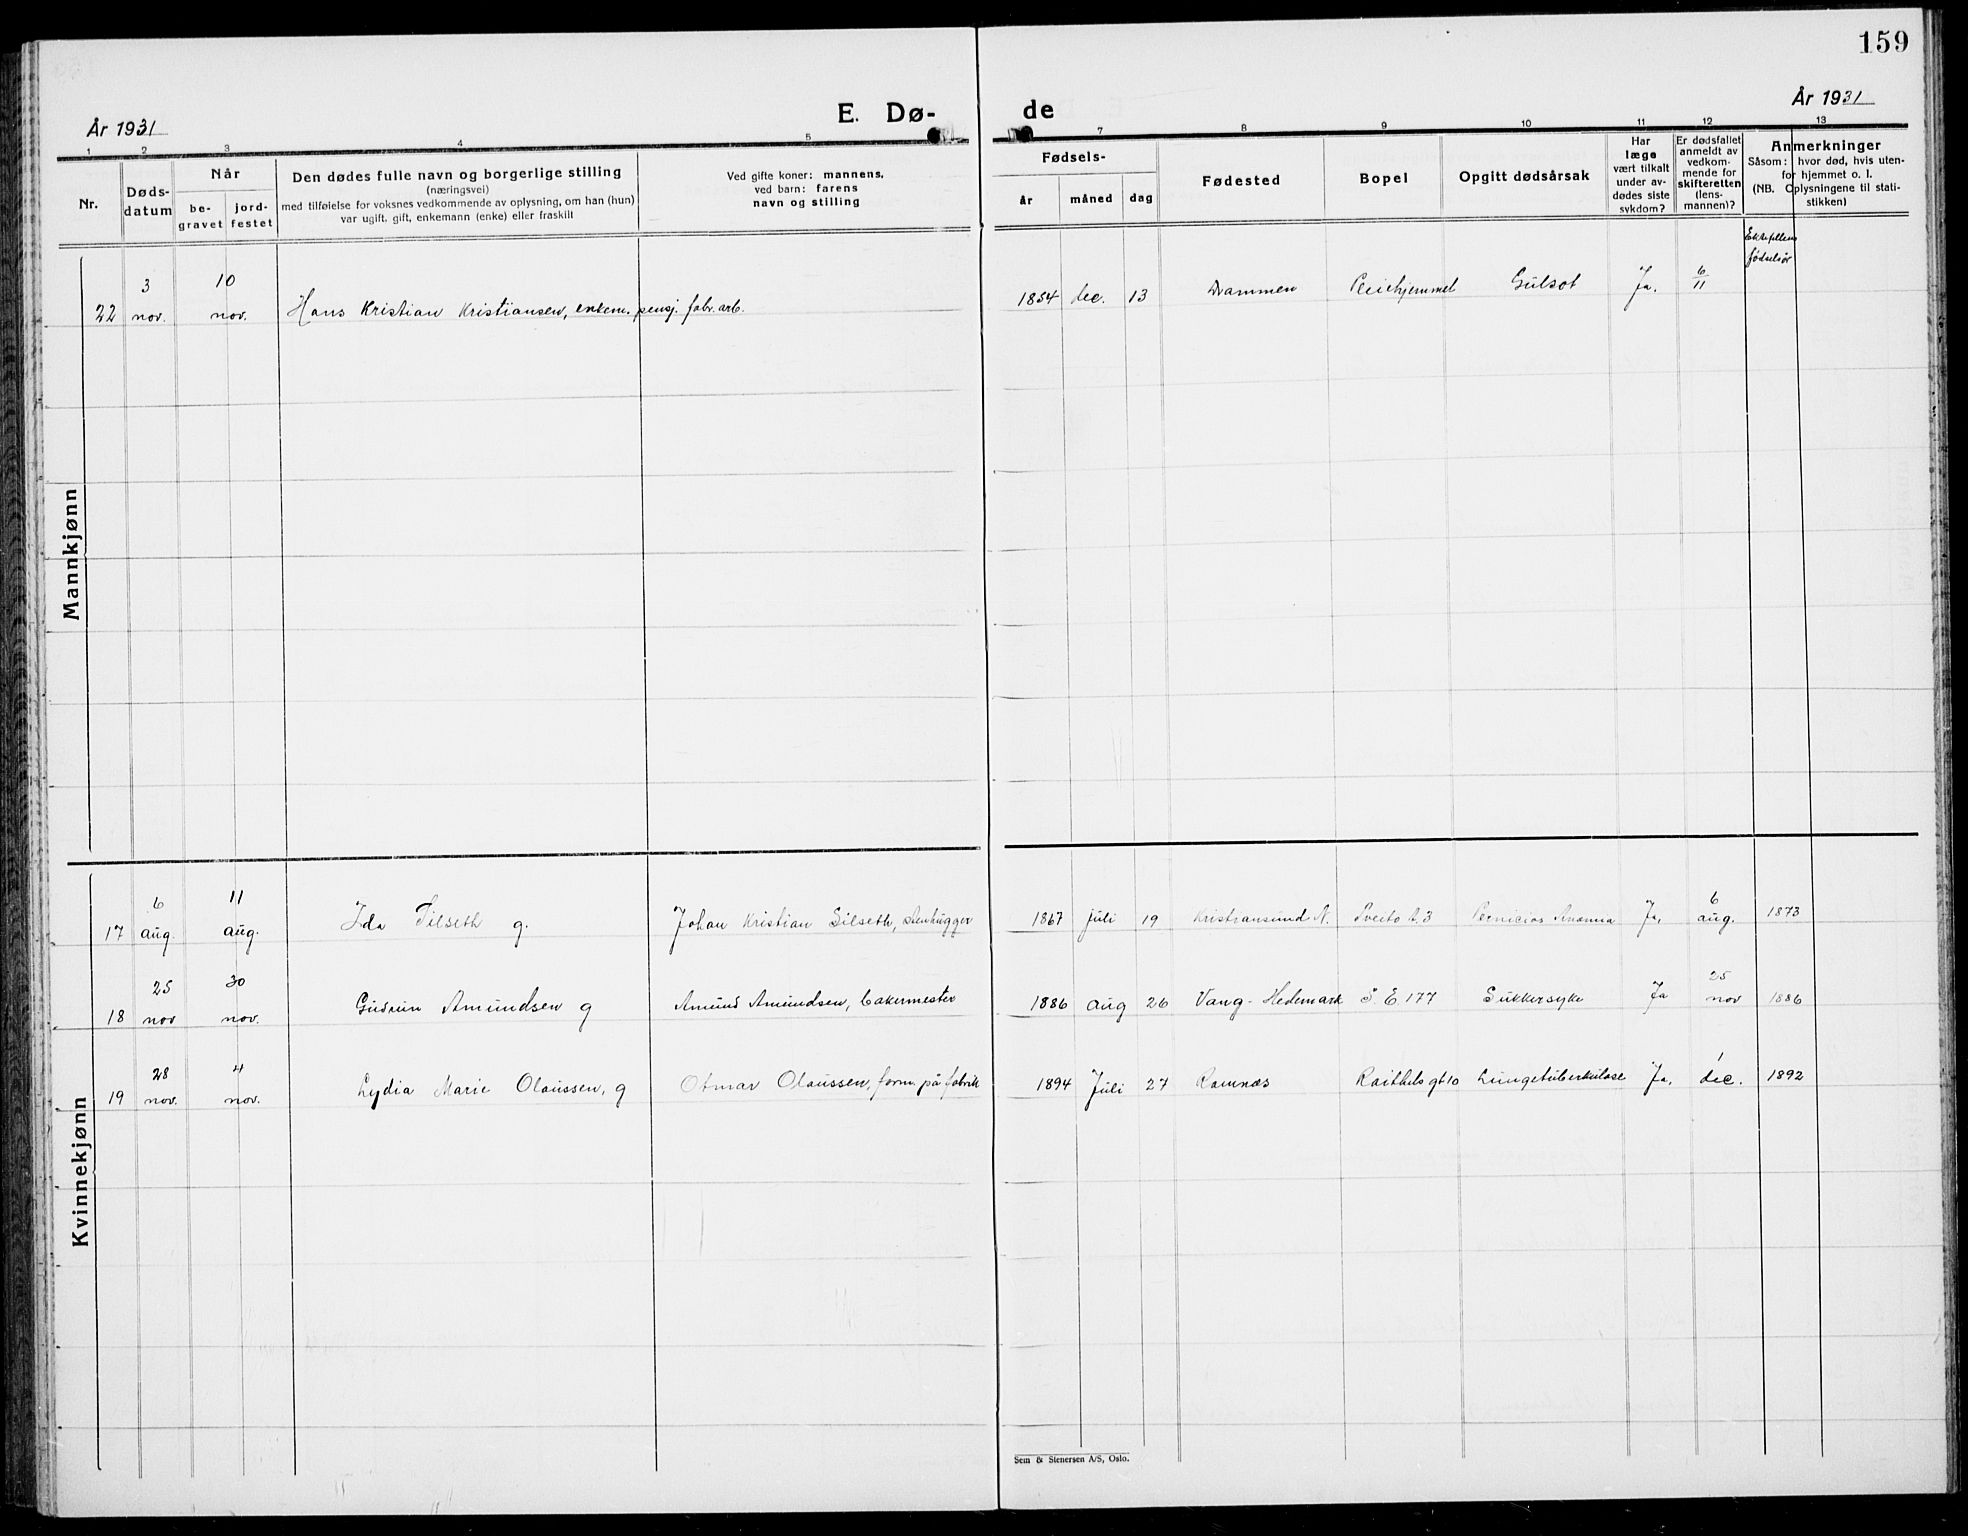 159
År 1931
E. Dø-
de
År 1931
1 2 3 4 5 7 8 9 10 11 12 13
Nr.
Døds-
datum
Når
be-
gravet
jord-
festet
Den dødes fulle navn og borgerlige stilling
(næringsvei)
med tilføielse for voksnes vedkommende av oplysning, om han (hun)
var ugift, gift, enkemann (enke) eller fraskilt
Ved gifte koner: mannens,
ved barn: farens
navn og stilling
Fødsels-
år
måned
dag
Fødested
Bopel
Opgitt dødsårsak
Har
læge
vært tilkalt
under av-
dødes siste
sykdom?
Er dødsfallet
anmeldt av
vedkom-
mende for
skifteretten
(lens-
mannen)?
Anmerkninger
Såsom: hvor død, hvis uten-
for hjemmet o. l.
(NB. Oplysningene til stati-
stikken)
Ektefellens
fødselsår
Mannkjønn
3 10
22 nov. nov. Hans Kristian Kristiansen, enkem. pensj. fabr. arb. 1854 dec. 13 Drammen Pleiehjemmet Gulsot Ja. 6/11
Kvinnekjønn
6 11
17 aug. aug. Ida Silseth g. Johan Kristian Silseth, stenhugger 1867 juli 19 Kristiansund N. Tveito A. 3 Pernicios Anæmia Ja, 6 aug. 1873
25 30
18 nov nov. Gudrun Amundsen g Amund Amundsen, bakermester 1886 aug 26 Vang - Hedemark S. E 177 Sukkersyke Ja 25 nov 1886
28 4
19 nov. nov. Lydia Marie Olaussen, g Otmar Olaussen, form. på fabrik 1894 Juli 27 Ramnæs gt 10 Lungetuberkulose Ja, 1 dec. 1892
Sem & Stenersen A/S, Oslo.